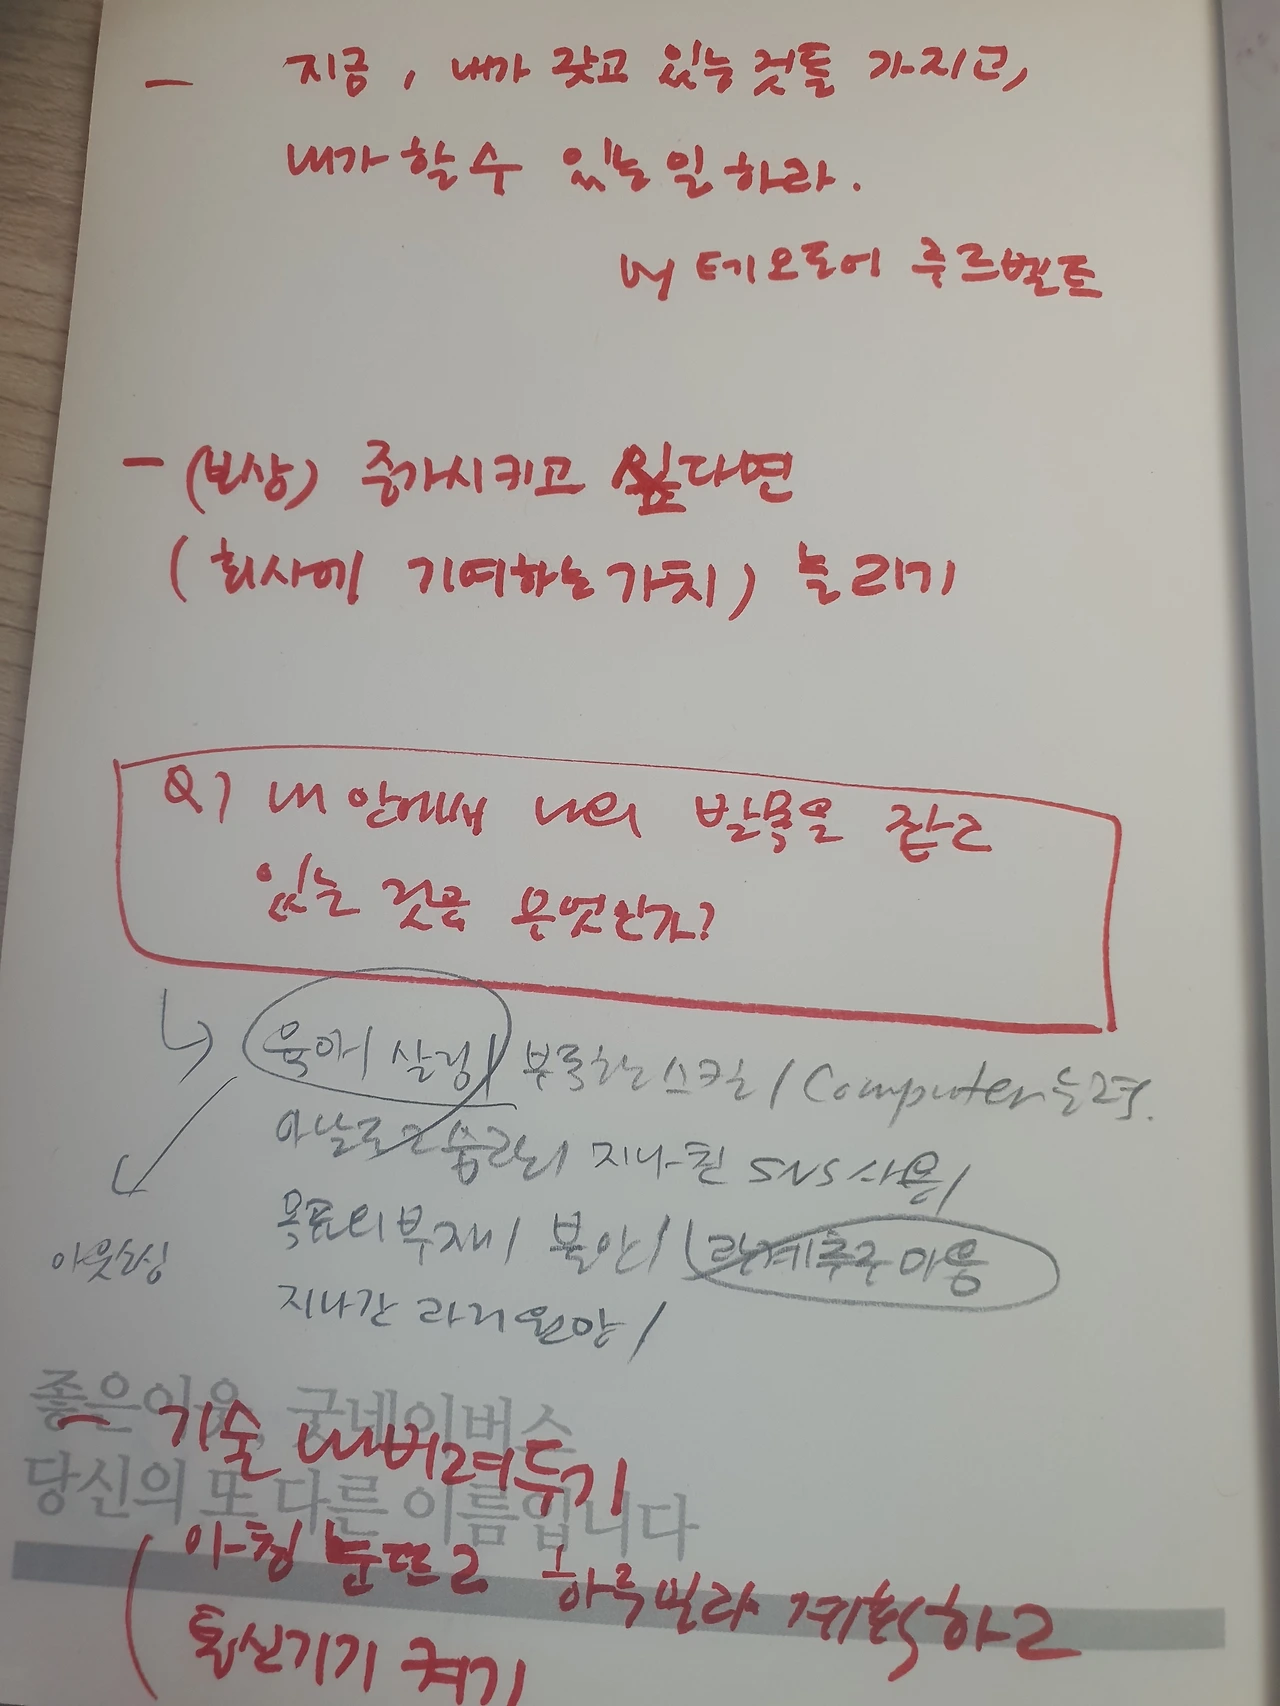 - 지금, 내가 갖고 있는 것들 가지고,
내가 할 수 있는 일 하라.
by 테기오도어 루르벨트
- (보상) 증가시키고 싶다면
(회사에 기여하는 가치) 늘리기
Q) 내 안에서 나의 발목을 잡고
있는 것은 무엇인가?
육아/살림/ 부족한 스킬/ Computer능력.
아날로그 습관/ 지나친 SNS 사용/
목표의 부재/ 불안/ 관계추구 마음
아웃소싱
지나간 과거
좋은이웃, 굿네이버스
- 기술 내버려두기
당신의 또 다른 이름입니다
(아침 눈뜨고 하루 계획하고
통신기기 켜기